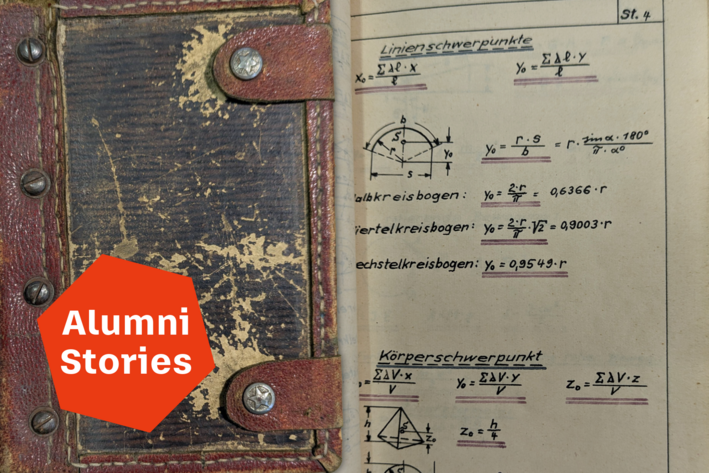 Alumni
Stories
St. 4
Linienschwerpunkte
x₀ = ΣΔl·x / l
y₀ = ΣΔl·y / l
b
S
r
y₀
s
y₀ = r·s / b = r · sin α·180° / π·α°
albkreisbogen: y₀ = 2·r / π = 0,6366·r
iertelkreisbogen: y₀ = 2·r / π · √2 = 0,9003·r
echstelkreisbogen: y₀ = 0,9549·r
Körperschwerpunkt
₀ = ΣΔV·x / V
y₀ = ΣΔV·y / V
z₀ = ΣΔV·z / V
h
z₀
z₀ = h / 4